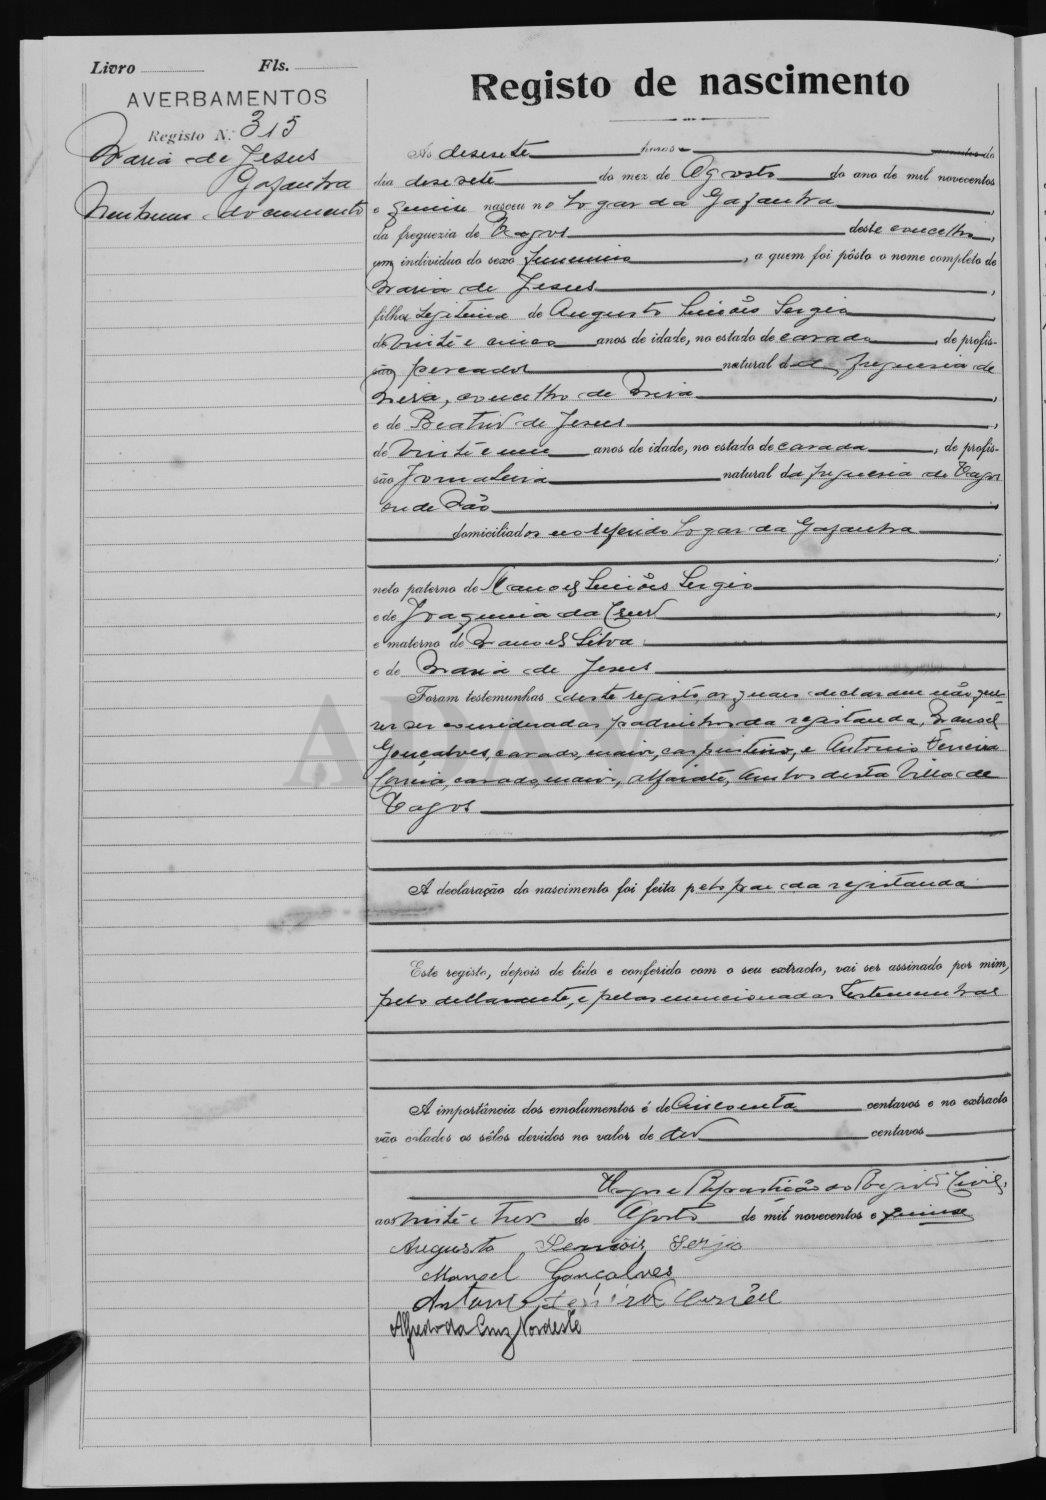 Livro Fls.
AVERBAMENTOS
Registo N.º 315
Maria de Jesus
Gafanha
Nenhum documento
Registo de nascimento
Ás desesete horas minutos do
dia desesete do mez de Agosto do ano de mil novecentos
e quinze nasceu no Logar da Gafanha,
da freguezia de Vagos deste concelho,
um individuo do sexo femenino, a quem foi pôsto o nome completo de
Maria de Jesus,
filha legitima de Augusto Simões Sergio
de vinte e cinco anos de idade, no estado de casado, de profis-
são pescador natural da freguesia de
Mira, concelho de Mira,
e de Beatriz de Jesus,
de vinte e um anos de idade, no estado de casada, de profis-
são Jornaleira natural da freguesia de Vagos
onde são,
domiciliados no referido Logar da Gafanha
;
neto paterno de Manoel Simões Sergio
e de Joaquina da Cruz,
e materno de Manoel Silva
e de Maria de Jesus
Foram testemunhas deste registo, os quaes declaram não que-
rer ser considerados padrinhos da registanda, Manoel
Gonçalves, casado, maior, carpinteiro, e Antonio Ferreira
Correia, casado, maior, alfaiate, ambos desta Villa de
Vagos
A declaração do nascimento foi feita pelo pae da registanda
Este registo, depois de lido e conferido com o seu extracto, vai ser assinado por mim,
pelo declarante, e pelas mencionadas testemunhas
A importância dos emolumentos é de cincoenta centavos e no extracto
vão colados os sêlos devidos no valor de dez centavos
Vagos e Repartição do Registo Civil,
aos vinte e tres de Agosto de mil novecentos e quinze
Augusto Semõis Serjio
Manoel Gonçalves
Antonio Ferreira Corrêa
Alfredo da Cruz Nordeste